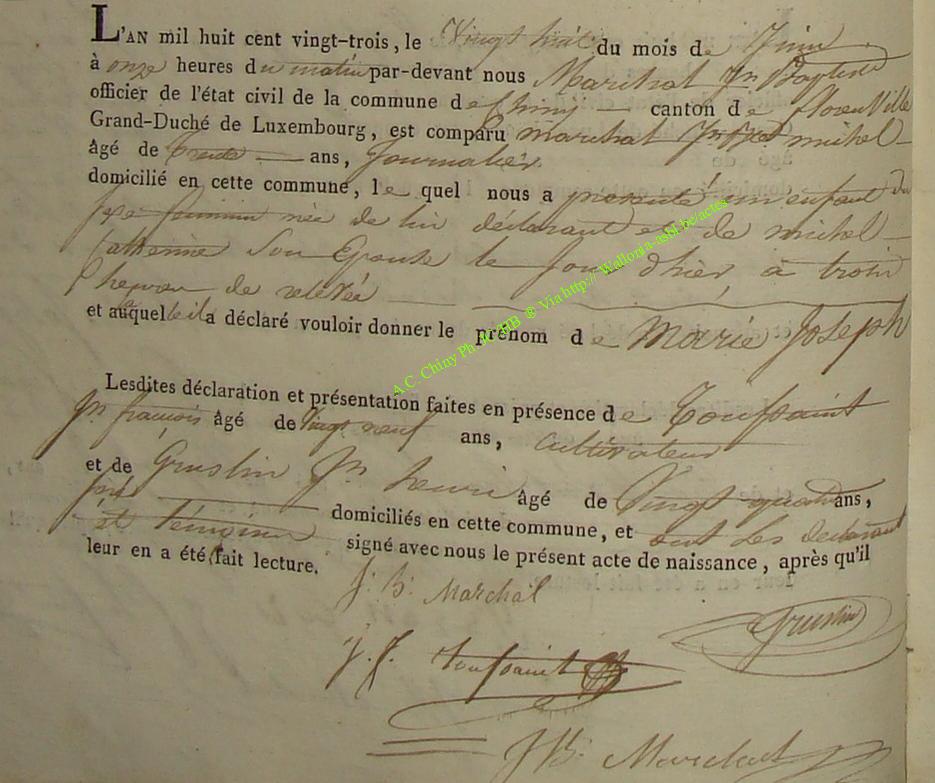 L'AN mil huit cent vingt-trois, le Vingt huit du mois de Juin
à onze heures du matin par-devant nous Marchal Jn Baptiste
officier de l'état civil de la commune de Chiny canton de florenville
Grand-Duché de Luxembourg, est comparu marchal Jn michel
âgé de trente ans, Journalier
domicilié en cette commune, le quel nous a présenté un enfant du
sexe feminin née de lui déclarant et de michel
Catherine Son Epouse le Jour d'hier à trois
heures de relevée
et auquel il a déclaré vouloir donner le prénom de Marie Joseph
Lesdites déclaration et présentation faites en présence de Toussaint
jn françois âgé de Vingt neuf ans, cultivateur
et de Gruslin Jn henri âgé de Vingt quatre ans,
domiciliés en cette commune, et ont les déclarant
et témoins signé avec nous le présent acte de naissance, après qu'il
leur en a été fait lecture.
J. B. Marchal
Gruslin
J. f. Toussaint
J B. Marchal
A.C. Chiny Ph. @ Via http://Wallonia-asbl.be/actes